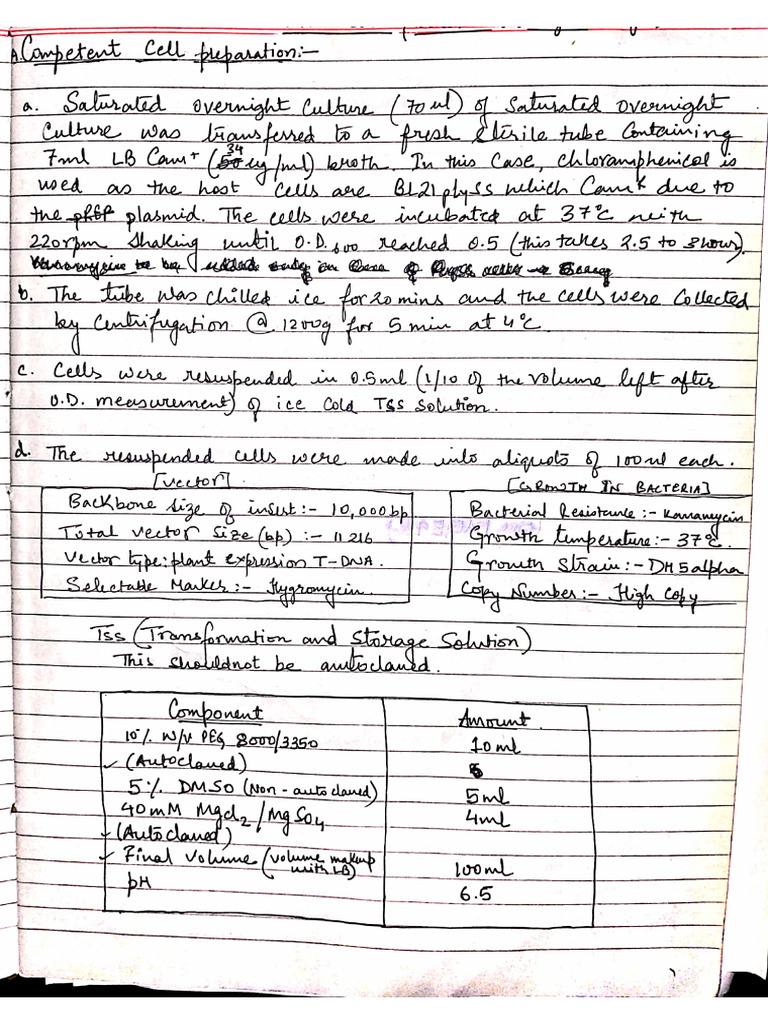 A. Competent Cell preparation:-
a. Saturated overnight Culture (70 ul) of Saturated overnight
Culture was transferred to a fresh sterile tube Containing
7ml LB Cam+ (34 ug/ml) broth. In this Case, chloramphenicol is
used as the host cells are BL21 plysS which CamR due to
the plasmid. The cells were incubated at 37°C with
220rpm Shaking until O.D.600 reached 0.5 (this takes 2.5 to 3 hour).
b. The tube was chilled ice for 20 mins and the cells were Collected
by Centrifugation @ 1200g for 5 min at 4°C.
c. Cells were resuspended in 0.5ml (1/10 of the volume left after
O.D. measurement) of ice Cold TSS Solution.
d. The resuspended cells were made into aliquots of 100ul each.
[vector]
Backbone size of insert:- 10,000bp
Total vector Size (bp) :- 11216
Vector type: plant expression T-DNA.
Selectable Marker:- Hygromycin.
[GROWTH IN BACTERIA]
Bacterial Resistance:- Kanamycin
Growth temperature:- 37°C.
Growth Strain:- DH5alpha
Copy Number:- High Copy
TSS (Transformation and Storage Solution)
This shouldnot be autoclaved.
Component Amount
10% W/V PEG 8000/3350 10ml
(Autoclaved)
5% DMSO (Non-autoclaved) 5ml
40mM Mgcl2/MgSO4 4ml
(Autoclaved)
Final Volume (volume makeup with LB) 100ml
pH 6.5